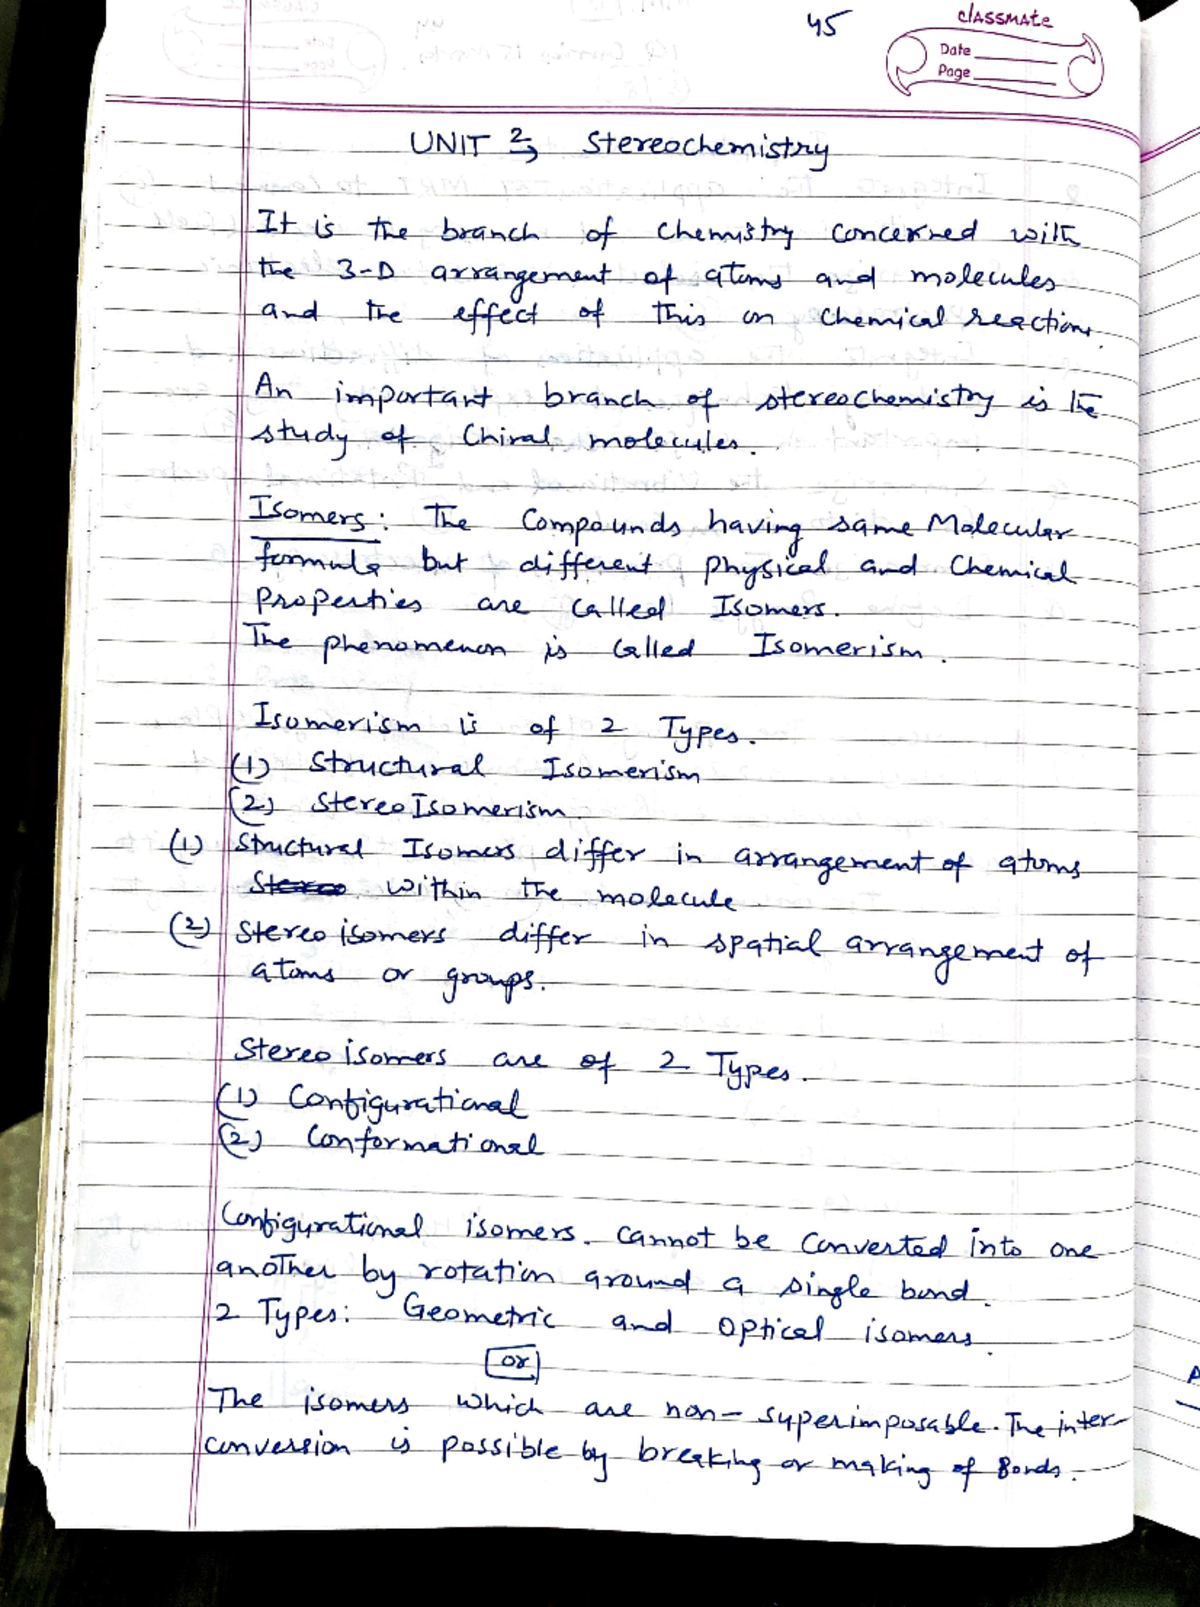 45
classmate
Date
Page
UNIT 2, Stereochemistry
It is the branch of chemistry concerned with
the 3-D arrangement of atoms and molecules
and the effect of this on chemical reactions.
An important branch of stereochemistry is the
study of Chiral molecules.
Isomers: The Compounds having same Molecular
formula but different physical and Chemical
Properties are called Isomers.
The phenomenon is called Isomerism.
Isomerism is of 2 Types.
(1) Structural Isomerism
(2) StereoIsomerism.
(1) Structural Isomers differ in arrangement of atoms
Stereo within the molecule
(2) Stereoisomers differ in spatial arrangement of
atoms or groups.
Stereoisomers are of 2 Types.
(1) Configurational
(2) Conformational
Configurational isomers. cannot be Converted into one
another by rotation around a single bond.
2 Types: Geometric and Optical isomers.
or
The isomers which are non-superimposable. The inter-
conversion is possible by breaking or making of Bonds.